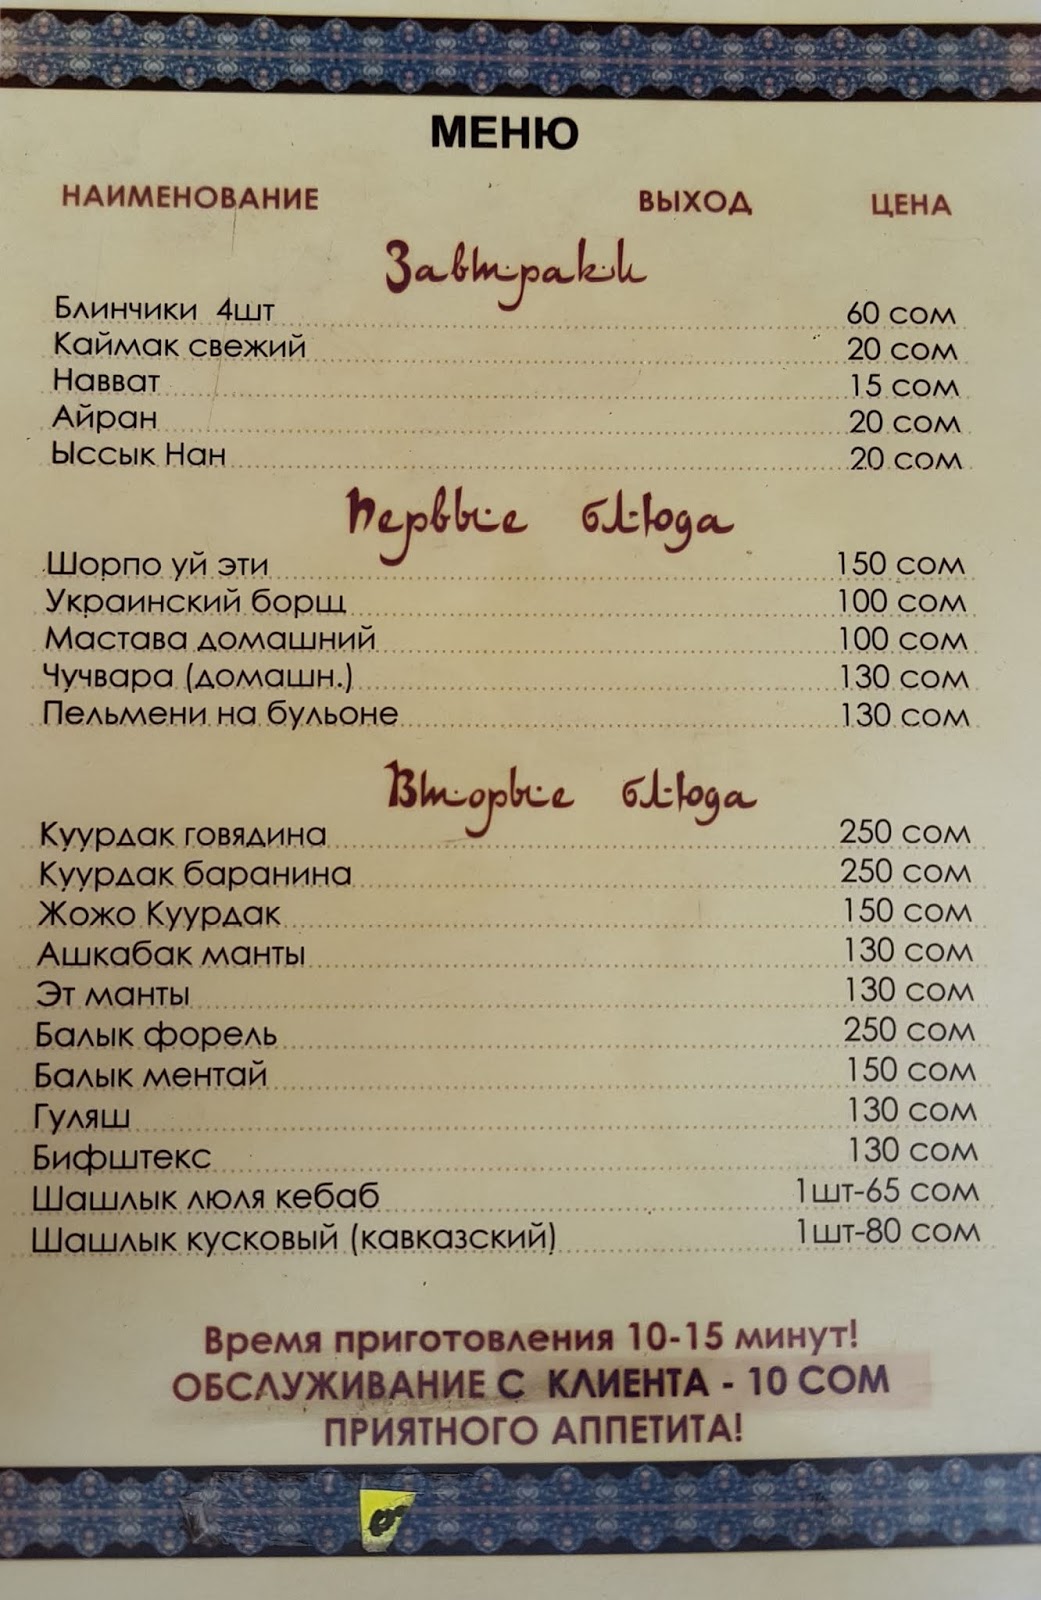 МЕНЮ
НАИМЕНОВАНИЕ ВЫХОД ЦЕНА
Завтраки
Блинчики 4шт 60 сом
Каймак свежий 20 сом
Навват 15 сом
Айран 20 сом
Ыссык Нан 20 сом
Первые блюда
Шорпо уй эти 150 сом
Украинский борщ 100 сом
Мастава домашний 100 сом
Чучвара (домашн.) 130 сом
Пельмени на бульоне 130 сом
Вторые блюда
Куурдак говядина 250 сом
Куурдак баранина 250 сом
Жожо Куурдак 150 сом
Ашкабак манты 130 сом
Эт манты 130 сом
Балык форель 250 сом
Балык ментай 150 сом
Гуляш 130 сом
Бифштекс 130 сом
Шашлык люля кебаб 1шт-65 сом
Шашлык кусковый (кавказский) 1шт-80 сом
Время приготовления 10-15 минут!
ОБСЛУЖИВАНИЕ С КЛИЕНТА - 10 СОМ
ПРИЯТНОГО АППЕТИТА!